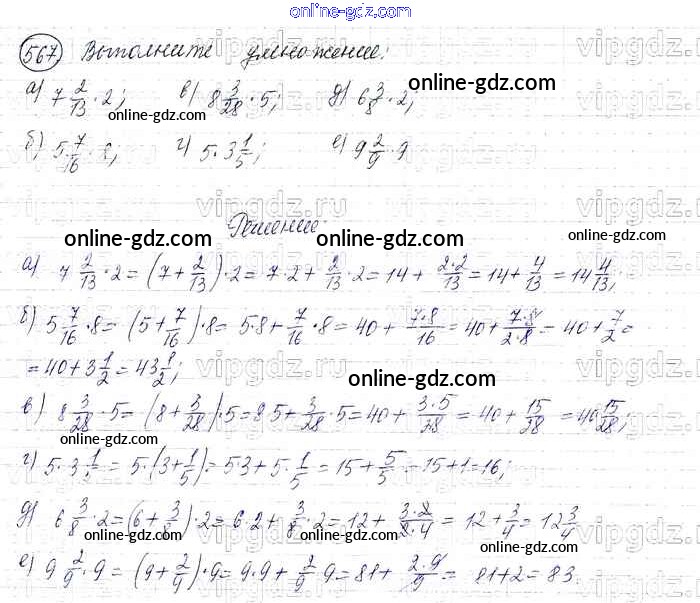 online-gdz.com
567. Выполните умножение:
а) 7 2/13 · 2; в) 8 3/28 · 5; д) 6 3/8 · 2;
online-gdz.com
online-gdz.com
б) 5 7/16 · 8; г) 5 · 3 1/5; е) 9 2/9 · 9
online-gdz.com
Решение:
online-gdz.com
online-gdz.com
а) 7 2/13 · 2 = (7 + 2/13) · 2 = 7 · 2 + 2/13 · 2 = 14 + 2·2/13 = 14 + 4/13 = 14 4/13;
б) 5 7/16 · 8 = (5 + 7/16) · 8 = 5·8 + 7/16 · 8 = 40 + 7·8/16 = 40 + 7·8/2·8 = 40 + 7/2 =
= 40 + 3 1/2 = 43 1/2;
online-gdz.com
в) 8 3/28 · 5 = (8 + 3/28) · 5 = 8·5 + 3/28 · 5 = 40 + 3·5/28 = 40 + 15/28 = 40 15/28;
online-gdz.com
г) 5 · 3 1/5 = 5 · (3 + 1/5) = 5·3 + 5 · 1/5 = 15 + 5/5 = 15 + 1 = 16;
online-gdz.com
д) 6 3/8 · 2 = (6 + 3/8) · 2 = 6·2 + 3/8 · 2 = 12 + 3·2/2·4 = 12 + 3/4 = 12 3/4
online-gdz.com
е) 9 2/9 · 9 = (9 + 2/9) · 9 = 9·9 + 2/9 · 9 = 81 + 2·9/9 = 81 + 2 = 83.
online-gdz.com